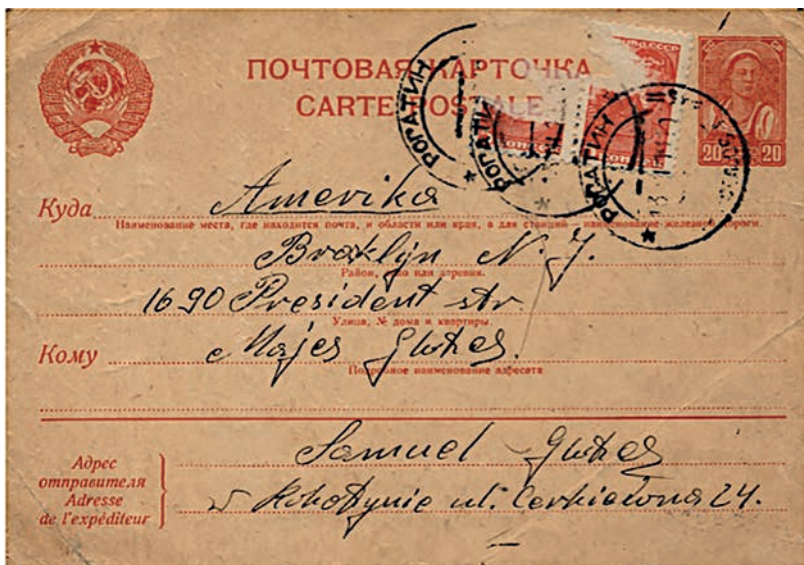 ПОЧТОВАЯ КАРТОЧКА
CARTE POSTALE
РОГАТИН
РОГАТИН
РОГАТИН
20 20
Куда Amerika
Наименование места, где находится почта, и области или края, а для станций – наименование железной дороги.
Broklyn N. J.
Район, село или деревня.
1690 President str.
Улица, № дома и квартиры.
Кому Majes
Подробное наименование адресата
Адрес
отправителя
Adresse
de l'expéditeur
Samuel
w Rohotynie ul. 24.